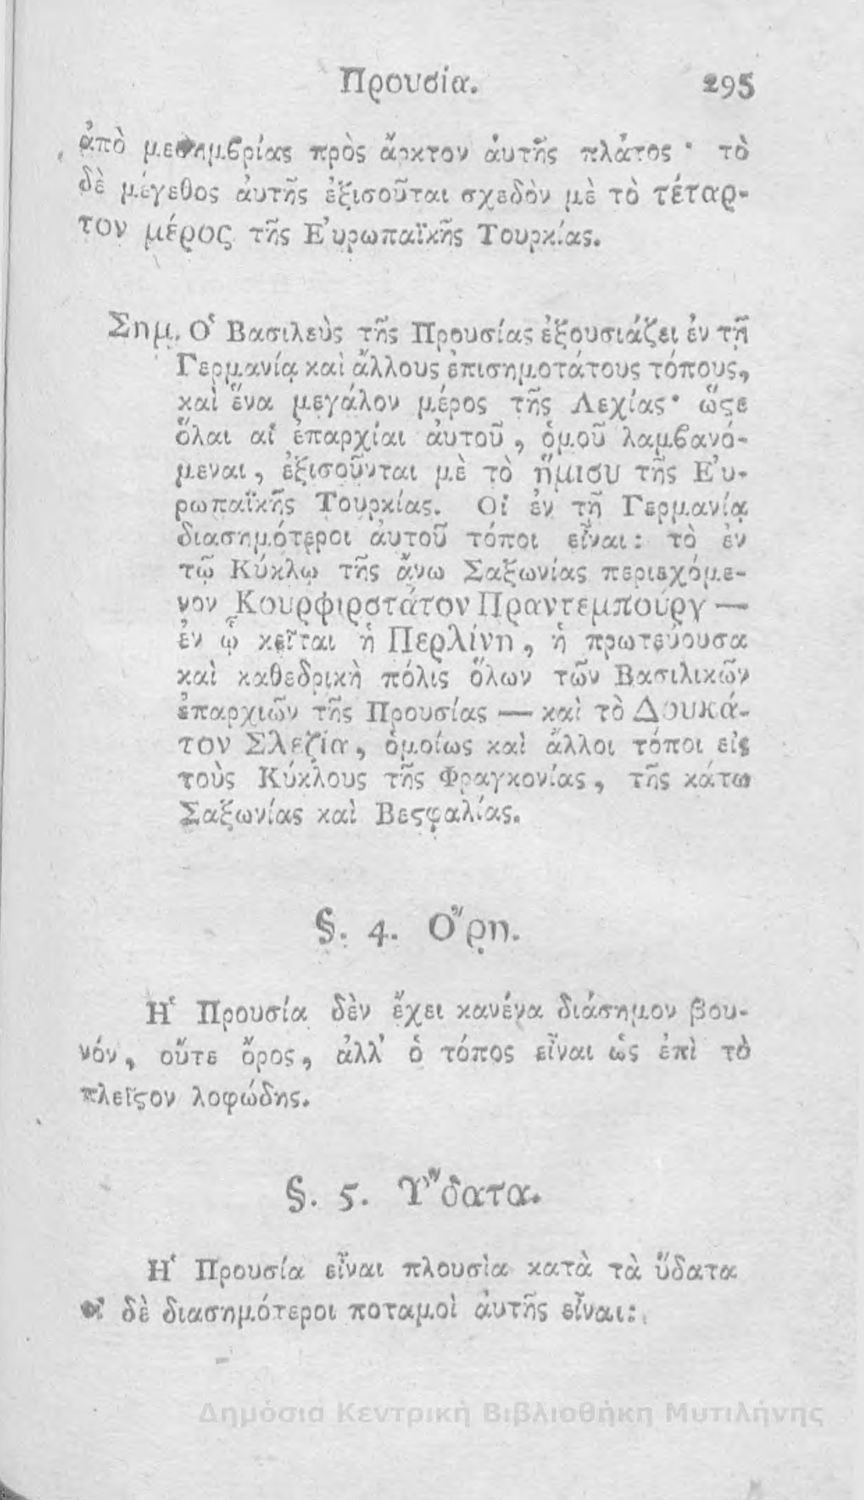 Προυσία. 295
ἀπὸ μεσημβρίας πρὸς ἄρκτον ἀυτῆς πλάτος · τὸ
δὲ μέγεθος ἀυτῆς ἐξισοῦται σχεδὸν μὲ τὸ τέταρ-
τον μέρος τῆς Ἐυρωπαϊκῆς Τουρκίας.
Σημ. Ὁ Βασιλεὺς τῆς Προυσίας ἐξουσιάζει ἐν τῇ
Γερμανίᾳ καὶ ἄλλους ἐπισημοτάτους τόπους,
καὶ ἕνα μεγάλον μέρος τῆς Λεχίας· ὥϛε
ὅλαι αἱ ἐπαρχίαι ἀυτοῦ, ὁμοῦ λαμβανό-
μεναι, ἐξισοῦνται μὲ τὸ ἥμισυ τῆς Ἐυ-
ρωπαϊκῆς Τουρκίας. Οἱ ἐν τῇ Γερμανίᾳ
διασημότεροι ἀυτοῦ τόποι εἶναι: τὸ ἐν
τῷ Κύκλῳ τῆς ἄνω Σαξωνίας περιεχόμε-
νον Κουρφιρστάτον Πραντεμπούργ —
ἐν ᾧ κεῖται ἡ Περλίνη, ἡ πρωτεύουσα
καὶ καθεδρικὴ πόλις ὅλων τῶν Βασιλικῶν
ἐπαρχιῶν τῆς Προυσίας — καὶ τὸ Δουκά-
τον Σλεζία, ὁμοίως καὶ ἄλλοι τόποι εἰς
τοὺς Κύκλους τῆς Φραγκονίας, τῆς κάτω
Σαξωνίας καὶ Βεϛφαλίας.
§. 4. Ὄρη.
Ἡ Προυσία δὲν ἔχει κανένα διάσημον βου-
νόν, οὔτε ὄρος, ἀλλ' ὁ τόπος εἶναι ὡς ἐπὶ τὸ
πλεῖϛον λοφώδης.
§. 5. Ὕδατα.
Ἡ Προυσία εἶναι πλουσία κατὰ τὰ ὕδατα
οἱ δὲ διασημότεροι ποταμοὶ ἀυτῆς εἶναι:
Δημόσια Κεντρική Βιβλιοθήκη Μυτιλήνης